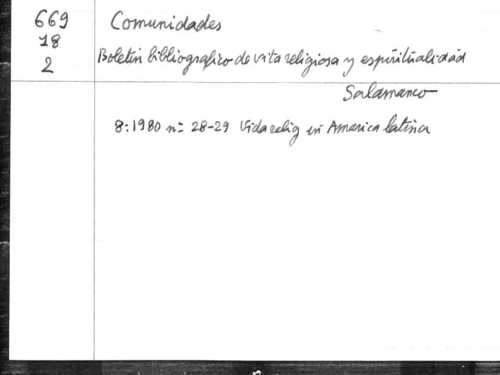 669
18
2
Comunidades
Boletín bibliografico de vita religiosa y espiritualidad
Salamanco
8:1980 n= 28-29 Vida relig en America latina